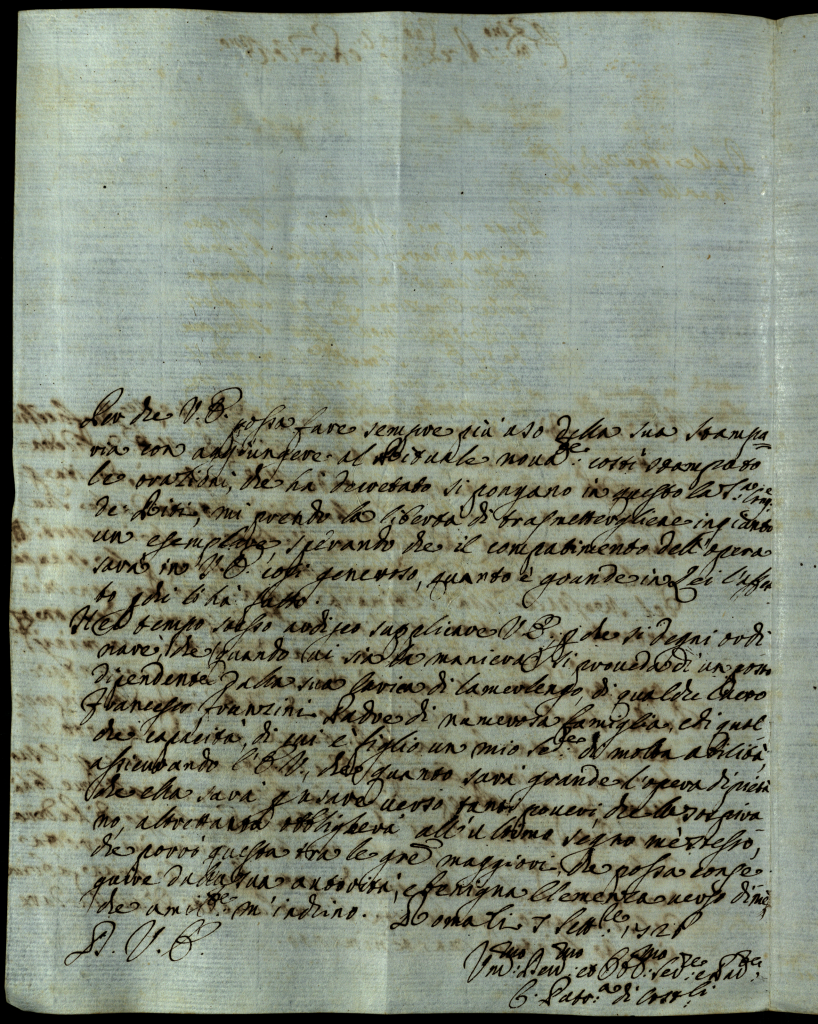 Per che V. E. possa fare sempre più uso della sua stampa=
ria con aggiungere al Rituale novam.te costi stampato
le orazioni, che ha decretato si pongano in questo la S. Cong.
de Riti, mi prendo la libertà di trasmettergliene in
un esemplare, sperando che il compatimento dell'opera
sarà in V. E. così generoso, quanto è grande in Lei
to fatto.
Nel tempo stesso ardisco supplicare V. E. che si degni ordi
nare, che quando vi sia la maniera si proveda di un posto
dipendente dalla sua carica di Camerlengo di qualche lucro
Francesco Franzini Padre di numerosa famiglia, e di qual
che capacità, di cui è figlio un mio di molta abilità,
assicurando l'E. V., che quanto sarà grande l'opera di pietà
che ella sarà usare verso tanti poveri, che la sospira
no, altrettanto obligherà all'ultimo segno me stesso,
che porrò questa tra le maggiori, che possa conse
guire dalla sua autorità, e benigna Clemenza verso di me,
che m'inchino. Roma li 7 Sett.e
D. V. E.
di